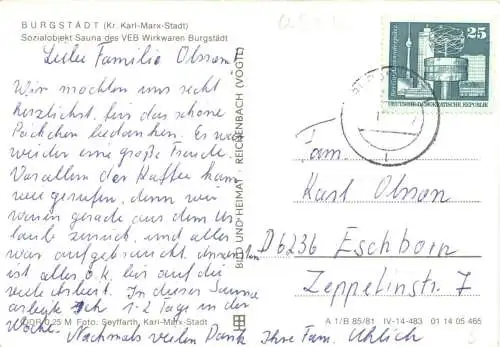 BURGSTÄDT (Kr. Karl-Marx-Stadt)
Sozialobjekt Sauna des VEB Wirkwaren Burgstädt
Liebe Familie Olson!
Wir möchten uns recht
herzlichst für das schöne
Päckchen bedanken. Es war
wieder eine große Freude.
Vor allem der Kaffee kam
wie gerufen, denn wir
waren gerade aus dem Ur-
laube zurück, und alles
war aufgebraucht.
ist alles o.k. bis auf die
viele Arbeit. In dieser Sauna
1-2 Tage in der
Woche.
Nochmals vielen Dank
Ihre Fam. Uhlich
BILD UND HEIMAT · REICHENBACH (VOGTL)
25
DEUTSCHE DEMOKRATISCHE REPUBLIK
Fam.
Karl Olson
D6236 Eschborn
Zeppelinstr. 7
DDR 0,25 M Foto: Seyffarth, Karl-Marx-Stadt
A 1/B 85/81 IV-14-483 01 14 05 465